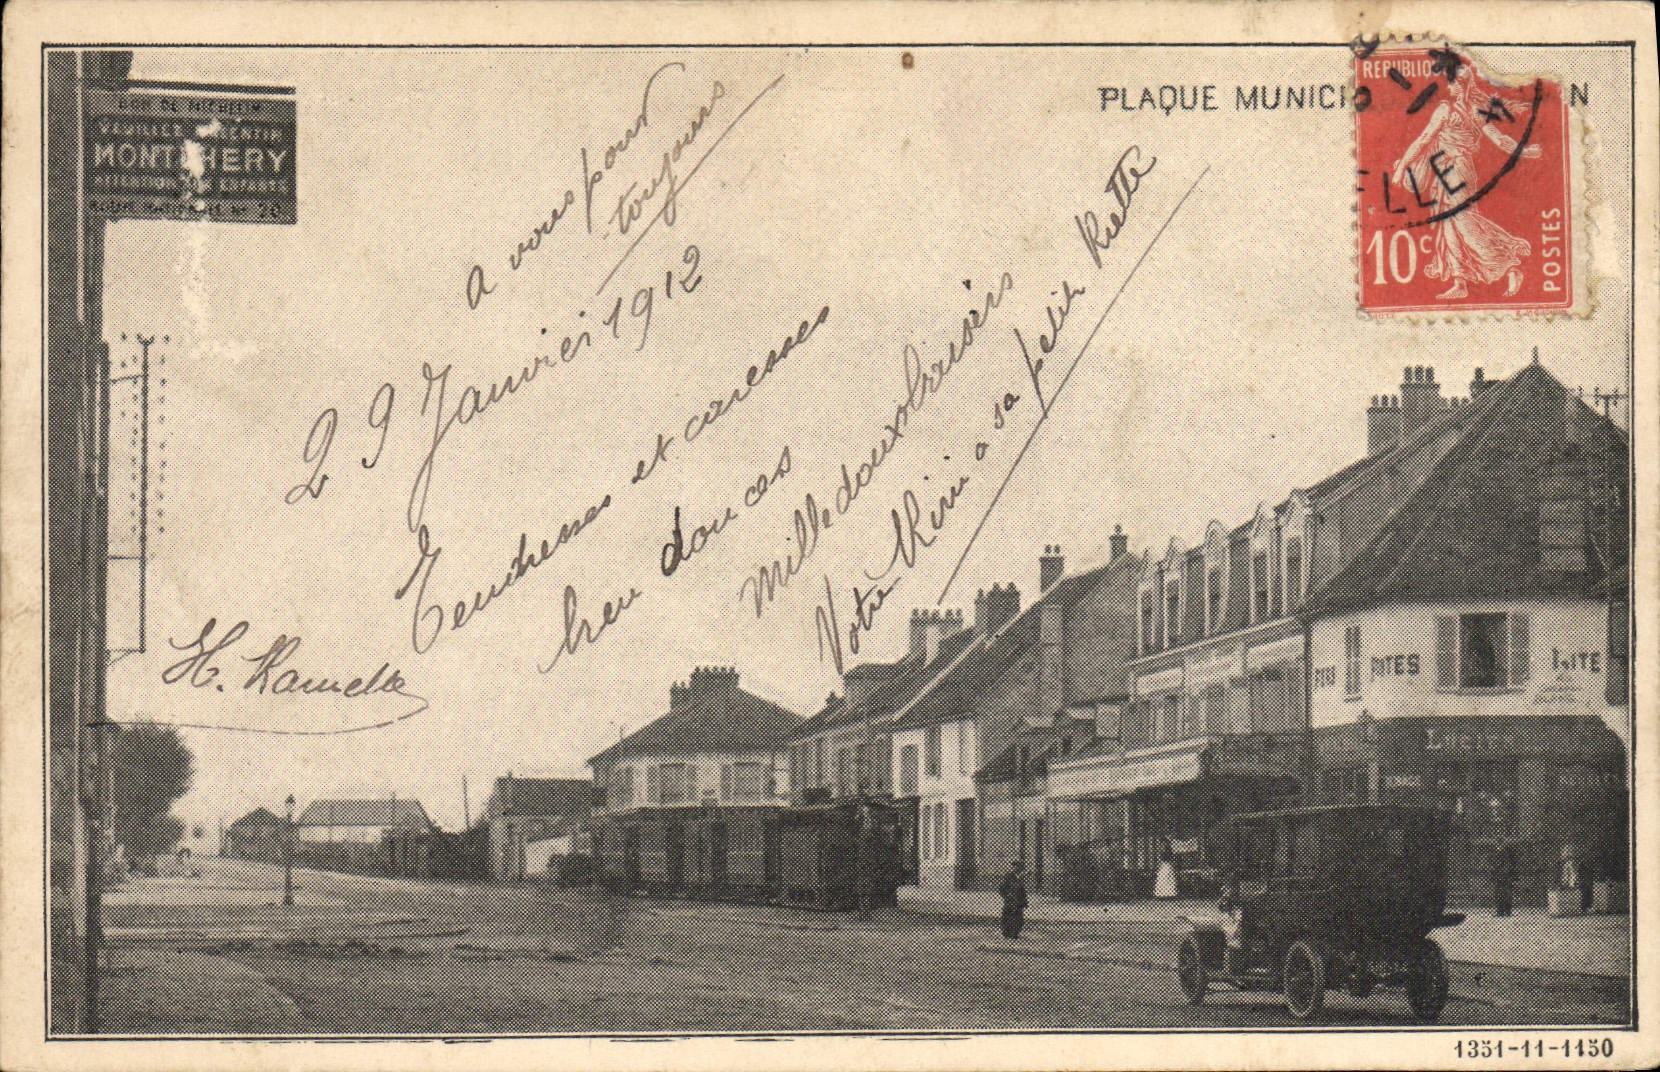 DON DE MICHELIN
VEUILLEZ RALENTIR
MONTLHERY
ATTENTION AUX ENFANTS
ROUTE NATIONALE N° 20
PLAQUE MUNICI N
REPUBLIQUE
10c
POSTES
ELLE
a vous pour
toujours
29 Janvier 1912
Tendresses et caresses
bien douces
Mille doux baisers
Votre Kiri a sa petite Riette
H. Ramelle
PATES
Lucien
1351-11-1150